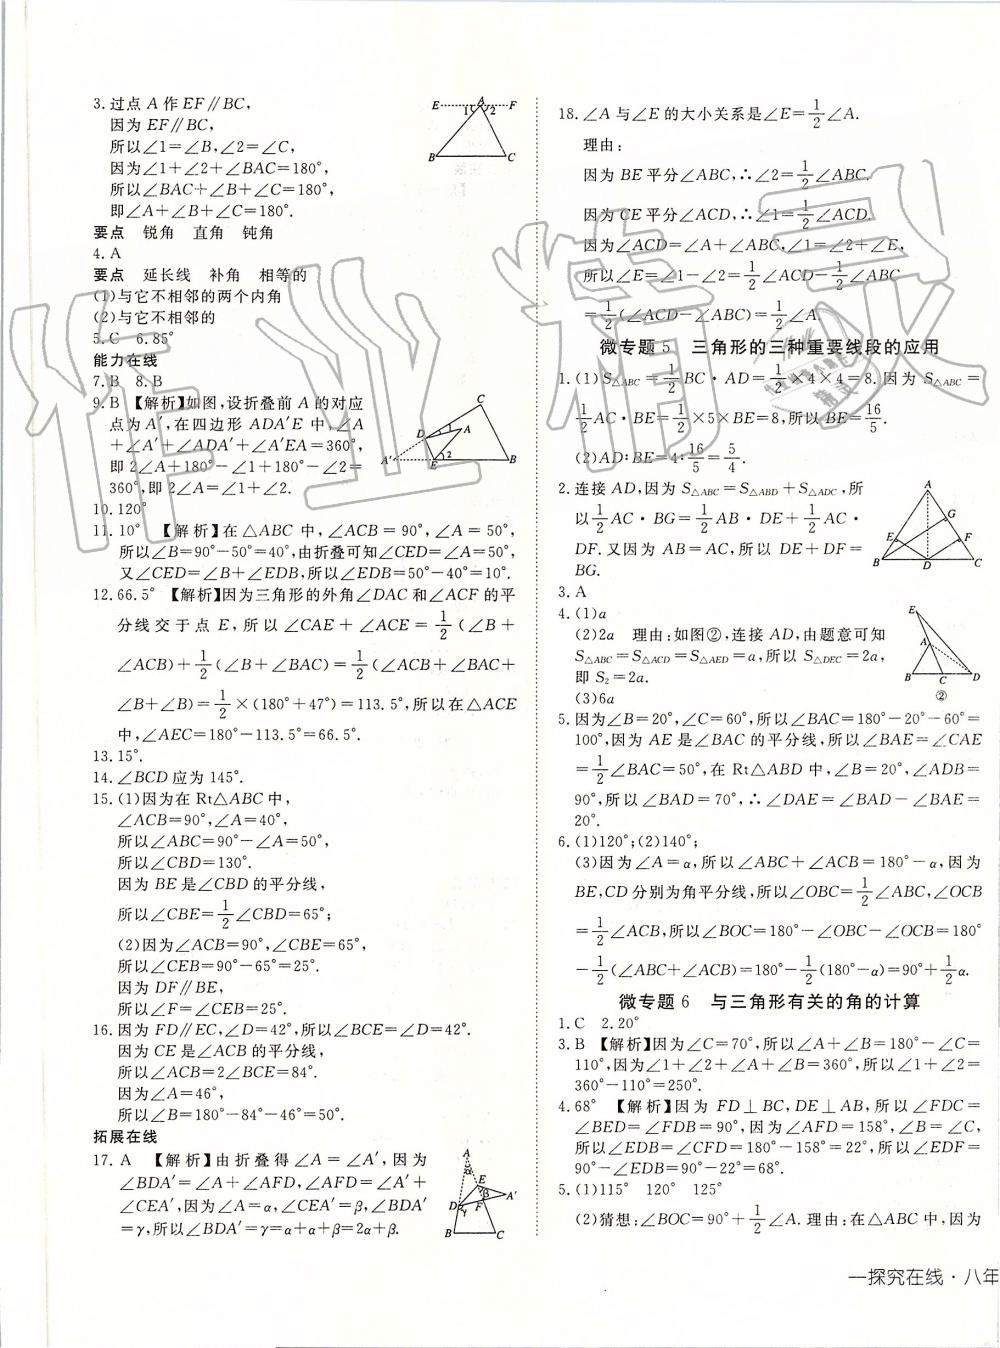 3.过点 A 作EF∥BC,
因为EF∥BC,
所以∠1=∠B,∠2=∠C,
因为∠1+∠2+∠BAC=180°,
所以∠BAC+∠B+∠C=180°,
即∠A+∠B+∠C=180°.
E A F
1 2
B C
要点 锐角 直角 钝角
4.A
要点 延长线 补角 相等的
(1)与它不相邻的两个内角
(2)与它不相邻的
5.C 6.85°
能力在线
7.B 8.B
9.B 【解析】如图,设折叠前 A 的对应
点为A′,在四边形 ADA′E 中,∠A
+∠A′+∠ADA′+∠A′EA=360°,
即 2∠A+180°-∠1+180°-∠2=
360°,即 2∠A=∠1+∠2.
C
D 1 A
A′ E 2 B
10.120°
11.10° 【解析】在△ABC 中,∠ACB=90°,∠A=50°,
所以∠B=90°-50°=40°,由折叠可知∠CED=∠A=50°,
又∠CED=∠B+∠EDB,所以∠EDB=50°-40°=10°.
12.66.5° 【解析】因为三角形的外角∠DAC 和∠ACF 的平
分线交于点 E,所以∠CAE+∠ACE=1/2(∠B+
∠ACB)+1/2(∠B+∠BAC)=1/2(∠BAC+∠ACB+
∠B+∠B)=1/2×(180°+47°)=113.5°,所以在△ACE
中,∠AEC=180°-113.5°=66.5°.
13.15°
14.∠BCD 应为 145°.
15.(1)因为在 Rt△ABC 中,
∠ACB=90°,∠A=40°,
所以∠ABC=90°-∠A=50°,
所以∠CBD=130°.
因为 BE 是∠CBD 的平分线,
所以∠CBE=1/2∠CBD=65°;
(2)因为∠ACB=90°,∠CBE=65°,
所以∠CEB=90°-65°=25°.
因为 DF∥BE,
所以∠F=∠CEB=25°.
16.因为 FD∥EC,∠D=42°,所以∠BCE=∠D=42°.
因为 CE 是∠ACB 的平分线,
所以∠ACB=2∠BCE=84°.
因为∠A=46°,
所以∠B=180°-84°-46°=50°.
拓展在线
17.A 【解析】由折叠得∠A=∠A′,因为
∠BDA′=∠A+∠AFD,∠AFD=∠A′+
∠CEA′,因为∠A=α,∠CEA′=β,∠BDA′
=γ,所以∠BDA′=γ=α+α+β=2α+β.
A
α
E
β A′
D γ F
B C
18.∠A 与∠E 的大小关系是∠E=1/2∠A.
理由:
因为 BE 平分∠ABC,∴∠2=1/2∠ABC.
因为 CE 平分∠ACD,∴∠1=1/2∠ACD.
因为∠ACD=∠A+∠ABC,∠1=∠2+∠E,
所以∠E=∠1-∠2=1/2∠ACD-1/2∠ABC
=1/2(∠ACD-∠ABC)=1/2∠A.
微专题 5 三角形的三种重要线段的应用
1.(1)S△ABC=1/2BC·AD=1/2×4×4=8.因为 S△ABC=
1/2AC·BE=1/2×5×BE=8,所以 BE=16/5.
(2)AD:BE=4:16/5=5/4.
2.连接 AD,因为 S△ABC=S△ABD+S△ADC,所
以1/2AC·BG=1/2AB·DE+1/2AC·
DF.又因为 AB=AC,所以 DE+DF=
BG.
A
G
E F
B D C
3.A
4.(1)a
(2)2a 理由:如图②,连接 AD,由题意可知
S△ABC=S△ACD=S△AED=a,所以 S△DEC=2a,
即 S2=2a.
(3)6a
E
A
B C D
②
5.因为∠B=20°,∠C=60°,所以∠BAC=180°-20°-60°=
100°,因为 AE 是∠BAC 的平分线,所以∠BAE=∠CAE
=1/2∠BAC=50°,在 Rt△ABD 中,∠B=20°,∠ADB=
90°,所以∠BAD=70°,∴∠DAE=∠BAD-∠BAE=
20°.
6.(1)120°;(2)140°;
(3)因为∠A=α,所以∠ABC+∠ACB=180°-α,因为
BE,CD 分别为角平分线,所以∠OBC=1/2∠ABC,∠OCB
=1/2∠ACB,所以∠BOC=180°-∠OBC-∠OCB=180°
-1/2(∠ABC+∠ACB)=180°-1/2(180°-α)=90°+1/2α.
微专题 6 与三角形有关的角的计算
1.C 2.20°
3.B 【解析】因为∠C=70°,所以∠A+∠B=180°-∠C=
110°,因为∠1+∠2+∠A+∠B=360°,所以∠1+∠2=
360°-110°=250°.
4.68° 【解析】因为 FD⊥BC,DE⊥AB,所以∠FDC=
∠BED=∠FDB=90°,因为∠AFD=158°,∠B=∠C,
所以∠EDB=∠CFD=180°-158°=22°,所以∠EDF=
90°-∠EDB=90°-22°=68°.
5.(1)115° 120° 125°
(2)猜想:∠BOC=90°+1/2∠A.理由:在△ABC 中,因为
一探究在线·八年
作业精灵